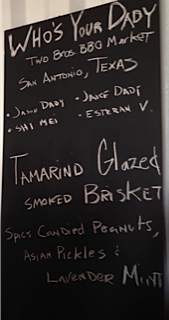 WHO'S YOUR DADY
TWO BROS. BBQ MARKET
SAN ANTONIO, TEXAS
• JASON DADY • JAKE DADY
• SHI MEI • ESTEBAN V.
TAMARIND GLAZED
SMOKED BRISKET
SPICY CANDIED PEANUTS,
ASIAN PICKLES &
LAVENDER MINT